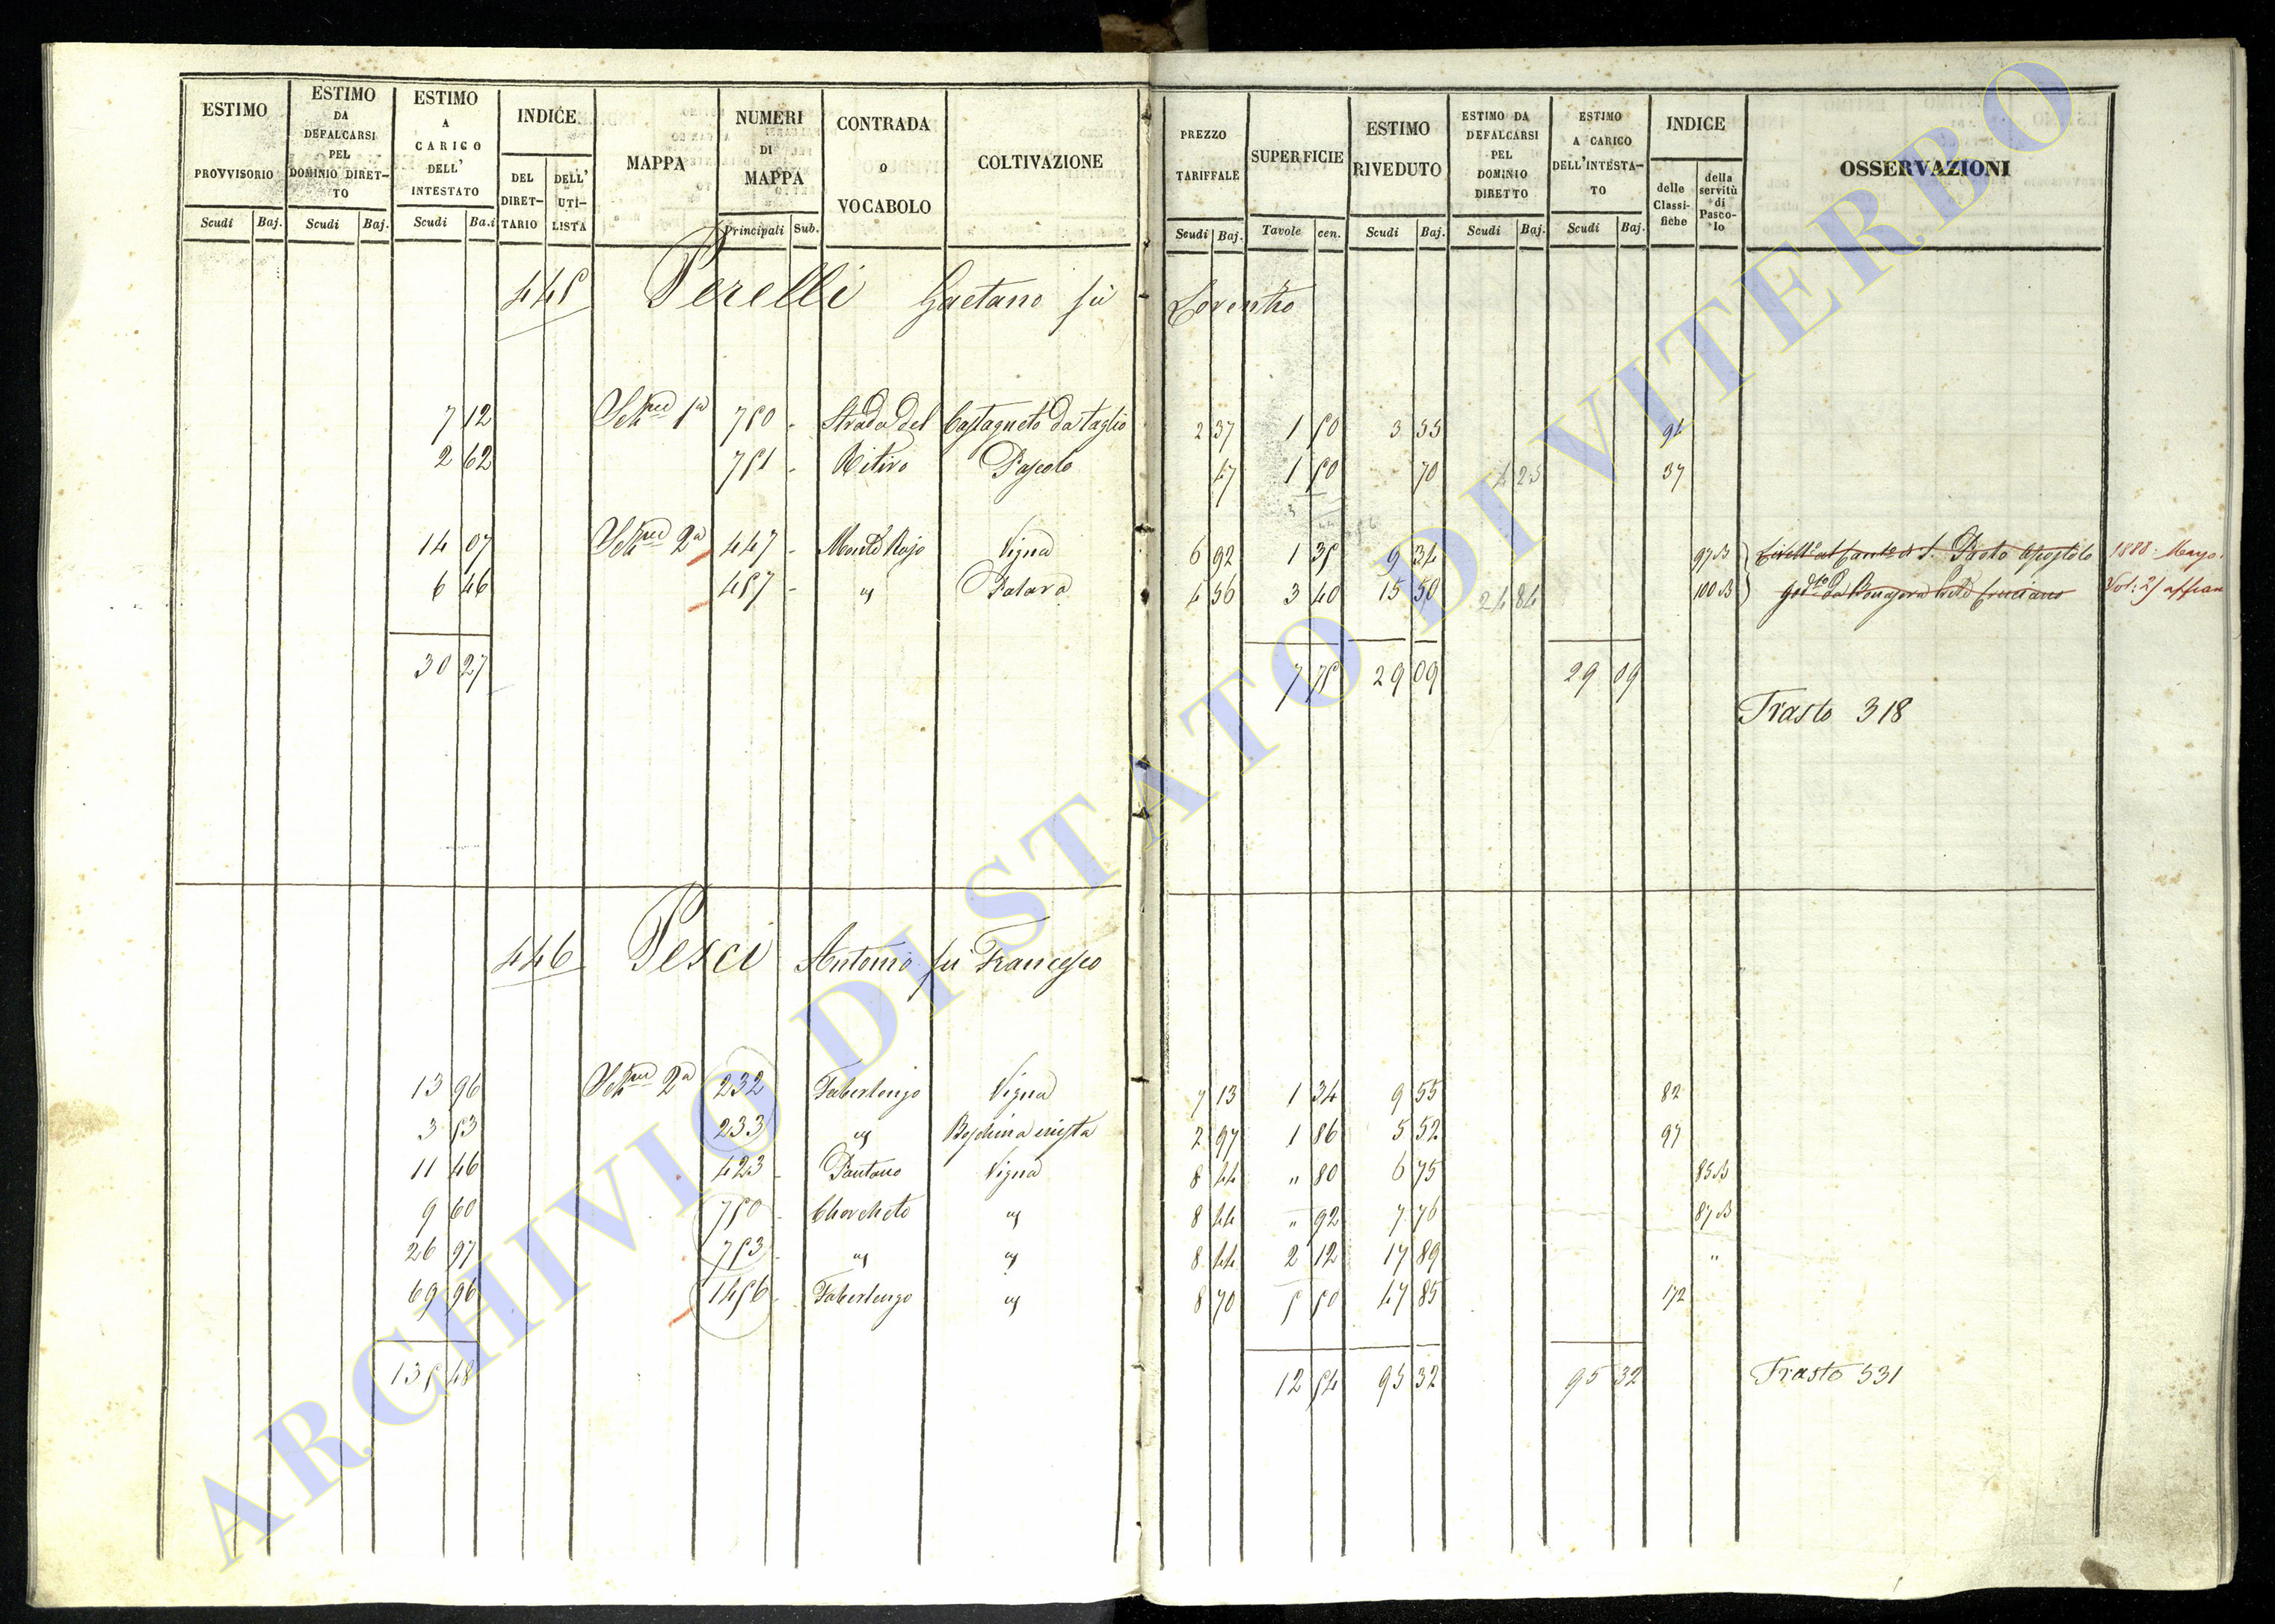 ESTIMO PROVVISORIO
ESTIMO DA DEFALCARSI PEL DOMINIO DIRET-TO
ESTIMO A CARICO DELL' INTESTATO
INDICE
DEL DIRET-TARIO DELL' UTI-LISTA
MAPPA
NUMERI DI MAPPA
CONTRADA o VOCABOLO
COLTIVAZIONE
PREZZO TARIFFALE
SUPERFICIE
ESTIMO RIVEDUTO
ESTIMO DA DEFALCARSI PEL DOMINIO DIRETTO
ESTIMO A CARICO DELL'INTESTA-TO
INDICE
delle Classi-fiche della servitù di Pasco-lo
OSSERVAZIONI
Scudi Baj. Scudi Baj. Scudi Ba.i Principali Sub. Scudi Baj. Tavole cen. Scudi Baj. Scudi Baj. Scudi Baj.
445 Perelli Gaetano fù Lorenzo
7 12 1a 750 - Strada del Castagneto da taglio 2 37 1 50 3 55 94
2 62 751 - Ritiro Pascolo 47 1 50 70 4 25 37
14 07 2a 447 - Monte Rojo Vigna 6 92 1 35 9 34 97 B S. Paolo Apostolo 1888
6 46 457 - " 4 56 3 40 15 50 24 84 100 B
30 27 7 75 29 09 29 09
Trasto 318
446 Pesci Antonio fù Francesco
13 96 2a 232 Faberlongo Vigna 7 13 1 34 9 55 82
3 53 233 " Boschina mista 2 97 1 86 5 52 97
11 46 423 - Pantano Vigna 8 44 " 80 6 75 85 B
9 60 750 - " 8 44 " 92 7 76 87 B
26 97 753 - " " 8 44 2 12 17 89 "
69 96 1456 - Faberlongo " 8 70 5 50 47 85 172
135 48 12 54 95 32 95 32 Trasto 531
ARCHIVIO DI STATO DI VITERBO